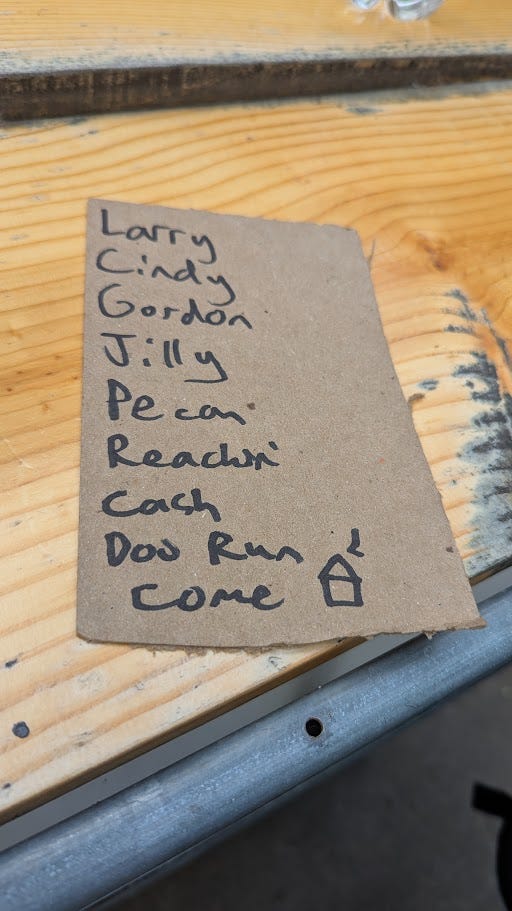 Larry
Cindy
Gordon
Jilly
Pecan
Reachin'
Cash
Doo Run
come